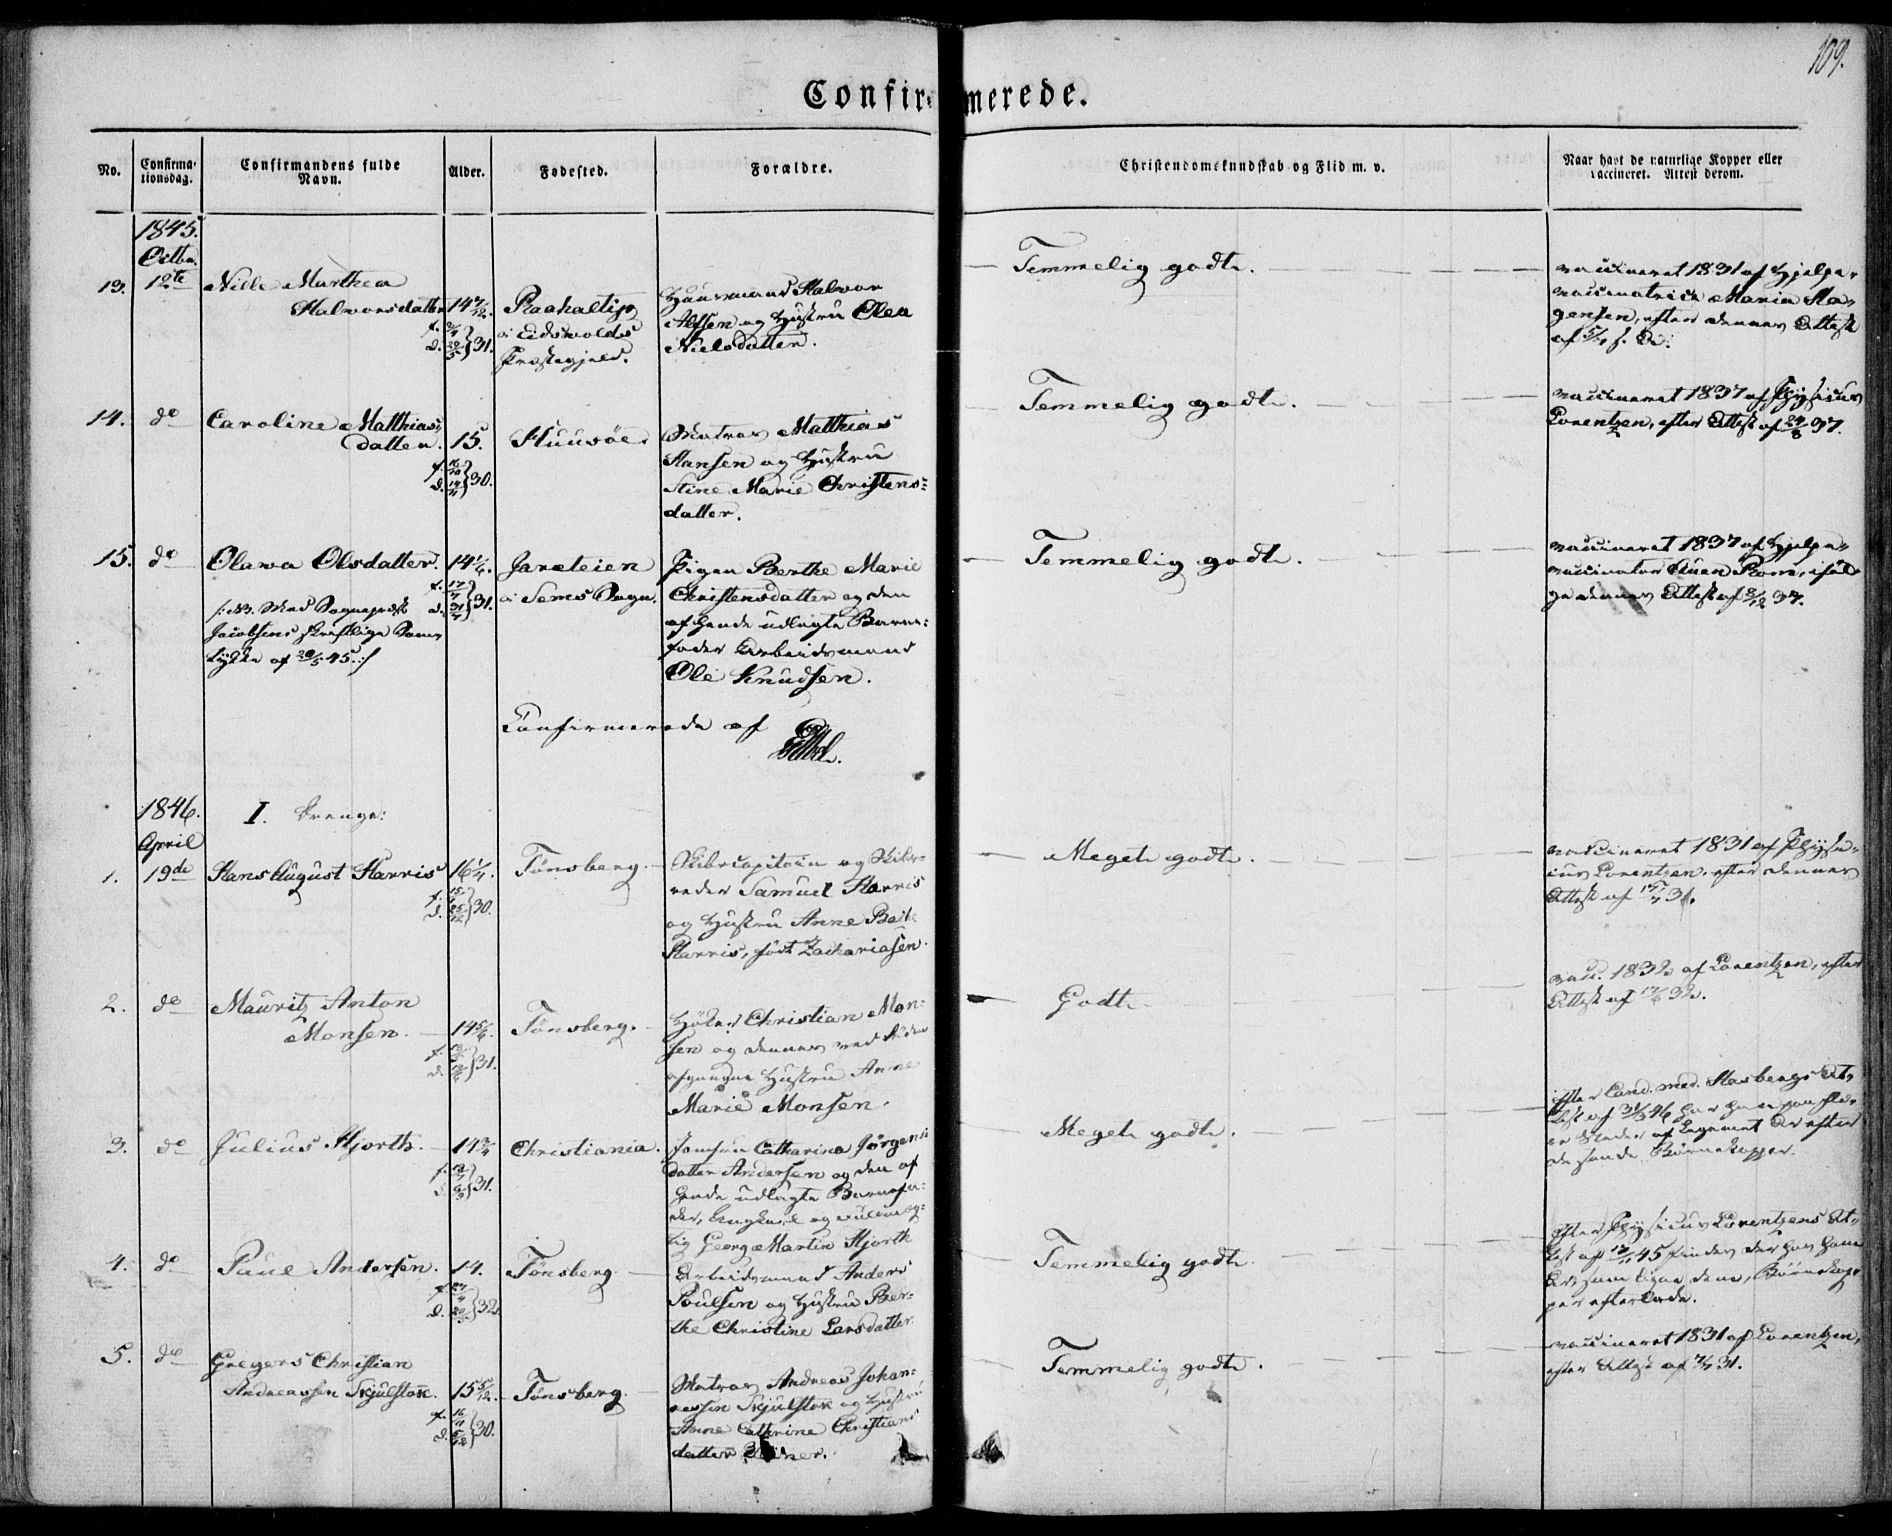 109.
Confirmerede.
No.
Confirma-
tionsdag.
Confirmandens fulde
Navn.
Alder.
Fødested.
Forældre.
Christendomskundskab og Flid m. v.
Naar havt de naturlige Kopper eller
vaccineret. Attest derom.
1845.
Octbr.
13. 12te
Marthea
Halvorsdatter
14 7/12.
f.
d. 31.
i Eidsvolds
Præstegjeld.
Huusmand Halvor
Alfsen og Hustru Olea
Nielsdatter.
Temmelig godt.
vaccineret 1831 af Hjelpe-
vaccinatrice Maria Ha-
gensen, efter dennes Attest
af
14. do
Caroline Matthias-
datter.
15.
f.
d. 30.
Huusøe.
Matros Matthias
Hansen og Hustru
Stine Marie Christens-
datter.
Temmelig godt.
vaccineret 1837 af Physicus
Lorentzen, efter Attest af 24/8 37.
15. do
Olava Olsdatter.
14 1/6.
f. 17/7
d. 31/7 31.
/: NB. Med Sognepræst
Jacobsens skriftlige Sam-
tykke af 28/5 45 :/
Jareteien
i Sems Sogn.
Pigen Berthe Marie
Christensdatter og den
af hende udlagte Barne-
fader Arbeidsmand
Ole Knudsen.
Temmelig godt.
vaccineret 1837 af Hjelpe-
vaccinator Auen Rom, iføl-
ge dennes Attest af 8/12 37.
Confirmerede af
1846. I. Drenge:
April
1. 19de
Hans August Harris
16 1/4.
f.
d. 30.
Tønsberg.
Skibscapitain og Skibs-
reder Samuel Harris
og Hustru Anne Beate
Harris, født Zachariasen.
Meget godt.
vaccineret 1831 af Physi-
cus Lorentzen, efter dennes
Attest af 31.
2. do
Mauritz Anton
Monsen.
14 5/6.
f.
d. 31.
Tønsberg.
Høker Christian Mon-
sen og dennes ved Døden
afgangne Hustru Anne
Marie Monsen.
Godt.
vacc. 1832 af Lorentzen, efter
Attest af 17/6 32.
3. do
Julius Hjorth.
14 3/4
f.
d. 31.
Christiania.
Jomfru Catharina Jørgens-
datter Andersen og den af
hende udlagte Barnefa-
der, og Fuldmæg-
tig Georg Martin Hjorth
Meget godt.
efter Cand. med. Hasbergs At-
test af 31/3 46 har han paa fle-
re Steder af Legemet Ar efter
de sande Børnekopper.
4. do
Paul Andersen.
14.
f.
d. 32.
Tønsberg.
Arbeidsmand Anders
Poulsen og Hustru Ber-
the Christine Larsdatter
Temmelig godt.
efter Physicus Lorentzens At-
test af 45 findes der hos ham
Ar, som ligne dem, Børnekop-
per efterlade.
5. do
Gregers Christian
Andreassen Skjulstok.
15 5/12.
f.
d. 30.
Tønsberg.
Matros Andreas Johan-
nessen Skjulstok og Hustru
Anne Cathrine Christians-
datter
Temmelig godt.
vaccineret 1831 af Lorentzen,
efter Attest af 31.